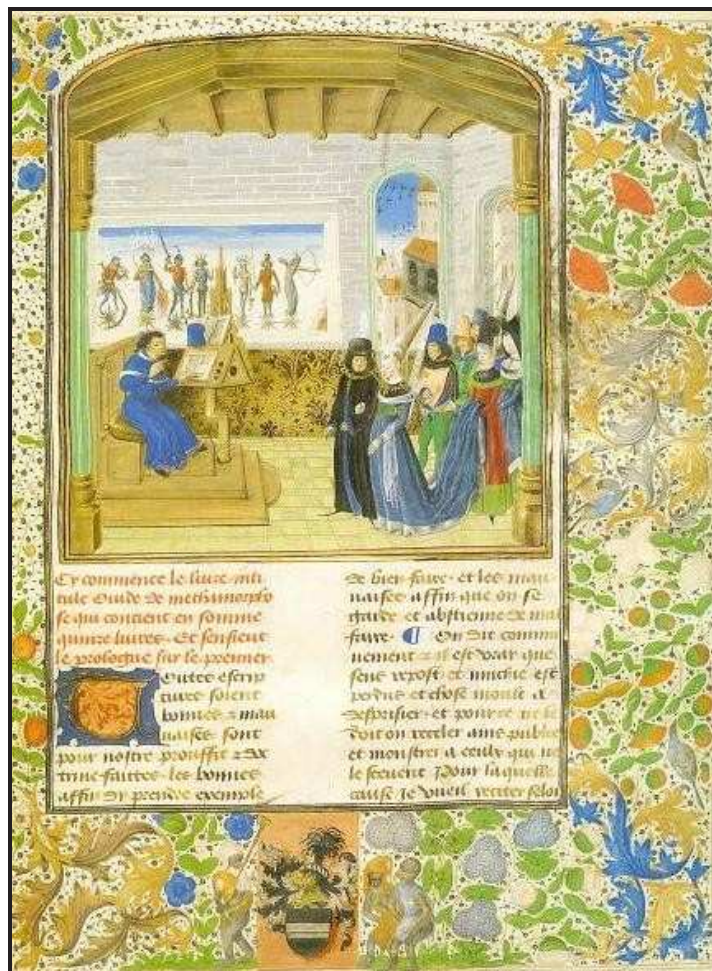 Cy commence le liure inti
tule Ouide de methamorpho
se qui contient en somme
quinze liures. Et sensieut
le prologue sur le premier
Toutes escrip
tures soient
bonnes & mau
uaises sont
pour nostre prouffit & doc
trine faittes. les bonnes
affin dy prendre exemple
de bien faire. et les mau
uaises affin que on se
garde et abstienne de mal
faire. On dit commu
nement & il est vray que
sens repost. et muchie est
perdus et chose moult a
despriser. et pource ne le
doit on receler ains publier
et monstrer a ceulx qui ne
le sceuent Pour laquelle
cause Je vueil reciter selon